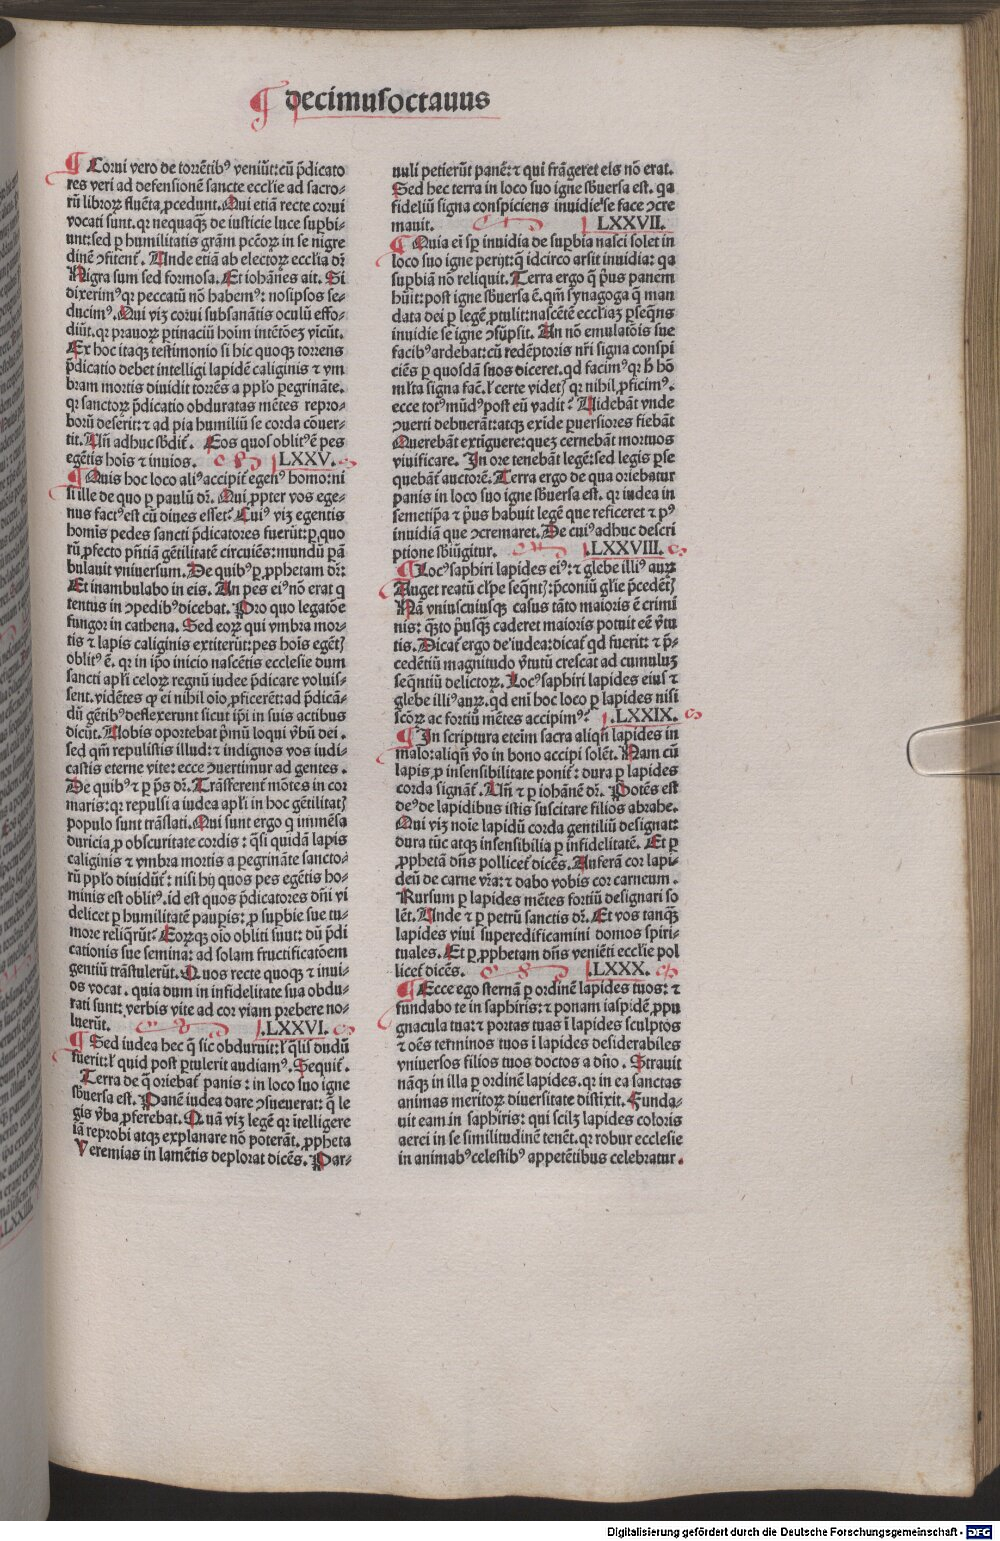 decimusoctauus
Corui vero de torrētibꝰ veniūt:cū p̄dicato
res veri ad defensionē sancte ecclīe ad sacro-
rū libroꝝ fluēta ꝓcedunt. Qui etiā recte corui
vocati sunt.qꝛ nequaqꝫ de iusticie luce suꝑbi-
unt:sed ꝑ humilitatis gr̄am pctōꝝ in se nigre
dinē ꝯfitent᷑. Unde etiā ab electoꝝ ecclīa dr̄
Nigra sum sed formosa. Et iohānes ait. Si
dixerimꝰ qꝛ peccatū nō habemꝰ: nosipsos se-
ducimꝰ. Qui viꝫ corui subsanātis oculū effo-
diūt.qꝛ prauoꝝ ꝑtinaciū hoīm intētōeꝫ vīcūt.
Ex hoc itaqꝫ testimonio si hic quoqꝫ torrens
p̄dicatio debet intelligi lapidē caliginis ⁊ vm
bram mortis diuidit torrēs a pplo ꝑegrināte.
qꝛ sanctoꝝ p̄dicatio obduratas mētes repro-
borū deserit: ⁊ ad pia humiliū se corda cōuer-
tit. Un̄ adhuc sb̄dit᷑. Eos quos oblitꝰ ē pes
egētis hoīs ⁊ inuios. LXXV.
Quis hoc loco aliꝰ accipit᷑ egenꝰ homo:ni
si ille de quo ꝑ paulū dr̄. Qui ꝓpter vos ege-
nus factꝰ est cū diues esset: Cuiꝰ viꝫ egentis
homīs pedes sancti p̄dicatores fuerūt: ꝑ quo
rū ꝓfecto pn̄tiā gētilitatē circuiēs: mundū ꝑā
bulauit vniuersum. De quibꝰ ꝑ ꝓphetam dr̄:
Et inambulabo in eis. An pes eiꝰ nō erat q
tentus in ꝯpedibꝰ dicebat. Pro quo legatōe
fungor in cathena. Sed eoꝝ qui vmbra mor-
tis ⁊ lapis caliginis extiterūt: pes hoīs egētꝭ
oblitꝰ ē. qꝛ in ip̄o inicio nascētis ecclesie dum
sancti apl̄i celoꝝ regnū iudee p̄dicare voluis-
sent.vidētes qꝫ ei nihil oīo ꝓficerēt:ad p̄dicā-
dū gētibꝰ deflexerunt sicut ip̄i in suis actibus
dicūt. Uobis oportebat p̄mū loqui vb̄ū dei.
sed qm̄ repulistis illud: ⁊ indignos vos iudi-
castis eterne vite: ecce ꝯuertimur ad gentes.
De quibꝰ ⁊ ꝑ ps̄ dr̄. Trāsferent᷑ mōtes in cor
maris: qꝛ repulsi a iudea apl̄i in hoc gētilitatꝭ
populo sunt trāslati. Qui sunt ergo q immēsa
duricia ꝓ obscuritate cordis: qͣsi quidā lapis
caliginis ⁊ vmbra mortis a ꝑegrināte sancto-
rū pplo diuidūt᷑: nisi hij quos pes egētis ho-
minis est oblitꝰ.id est quos p̄dicatores dn̄i vi
delicet ꝑ humilitatē paupīs: ꝓ suꝑbie sue tu-
more reliqͥrūt: Eoꝝqꝫ oīo obliti sunt: dū p̄di
cationis sue semina: ad solam fructificatōem
gentiū trāstulerūt. Quos recte quoqꝫ ⁊ inui-
os vocat. quia dum in infidelitate sua obdu-
rati sunt: verbis vite ad cor viam prebere no-
luerūt. LXXVI.
Sed iudea hec q̄ sic obduruit: l̓ qͣlis dudū
fuerit:l̓ quid post ꝑtulerit audiamꝰ. Sequit᷑.
Terra de q̄ oriebat᷑ panis: in loco suo igne
sb̄uersa est. Panē iudea dare ꝯsueuerat: q̄ le
gis vb̄a ꝓferebat. Quā viꝫ legē qꝛ ītelligere
iā reprobi atqꝫ explanare nō poterāt. ꝓpheta
Yeremias in lamētis deplorat dicēs. Par-
uuli petierūt panē: ⁊ qui frāgeret eis nō erat.
Sed hec terra in loco suo igne sb̄uersa est. qa
fideliū signa conspiciens inuidie se face ꝯcre
mauit. LXXVII.
Quia ei̅ sꝑ inuidia de suꝑbia nasci solet in
loco suo igne perijt: q̄ idcirco arsit inuidia: qa
suꝑbiā nō reliquit. Terra ergo q̄ pͥus panem
hūit: post igne sb̄uersa ē. qm̄ synagoga q̄ man
data dei ꝑ legē ꝓtulit: nascētē eccliaꝫ ꝑseqn̄s
inuidie se igne ꝯsūpsit. An nō emulatōis sue
facibꝰ ardebat: cū redēptoris nr̄i signa conspi
ciēs ꝑ quosdā suos diceret. qd facimꝰ qꝛ h̄ hō
ml̓ta signa fac̄. l̓ certe videtꝭ qꝛ nihil ꝓficimꝰ.
ecce totꝰ mūdꝰ post eū vadit: Uidebāt vnde
ꝯuerti debuerāt: atqꝫ exīde ꝑuersiores fiebāt
Querebāt extiguere: quez cernebāt mortuos
viuificare. In ore tenebāt legē: sed legis ꝑse
quebāt᷑ auctorē. Terra ergo de qua oriebatur
panis in loco suo igne sb̄uersa est. qꝛ iudea in
semetip̄a ⁊ pͥus habuit legē que reficeret ⁊ pꝰ
inuidiā que ꝯcremaret. De cuiꝰ adhuc descri
ptione sb̄iūgitur. LXXVIII.
Locꝰ saphiri lapides eiꝰ: ⁊ glebe illiꝰ auꝝ
Auget reatū cl̓pe seqn̄tꝭ: p̄coniū gl̄ie p̄cedētꝭ
Nā vniuscuiusqꝫ casus tāto maioris ē crimi
nis: qͣꝫto pͥusqͣꝫ caderet maioris potuit eē v̓tu
tis. Dicat᷑ ergo de iudea: dicat᷑ qd fuerit: ⁊ p̄-
cedētiū magnitudo v̓tutū crescat ad cumuluꝫ
seqn̄tiū delictoꝝ. Locꝰ saphiri lapides eius ⁊
glebe illiꝰ auꝝ. qd eni̅ hoc loco ꝑ lapides nisi
sctōꝝ ac fortiū mētes accipimꝰ: LXXIX.
In scriptura eteim sacra aliqn̄ lapides in
malo: aliqn̄ v̓o in bono accipi solēt. Nam cū
lapis ꝓ insensibilitate ponit᷑: dura ꝑ lapides
corda signāt᷑. Un̄ ⁊ ꝑ iohānē dr̄. Potēs est
deꝰ de lapidibus istis suscitare filios abrahe.
Qui viꝫ noīe lapidū corda gentiliū designat:
dura tūc atqꝫ insensibilia ꝑ infidelitatē. Et ꝑ
ꝓphetā dn̄s pollicet᷑ dicēs. Auferā cor lapi-
deū de carne vr̄a: ⁊ dabo vobis cor carneum.
Rursum ꝑ lapides mētes fortiū designari so
lēt. Unde ⁊ ꝑ petrū sanctis dr̄. Et vos tanqͣꝫ
lapides viui superedificamini domos spiri-
tuales. Et ꝑ ꝓphetam dn̄s veniēti ecclie pol
licet᷑ dicēs. LXXX.
Ecce ego sternā ꝑ ordinē lapides tuos: ⁊
fundabo te in saphiris: ⁊ ponam iaspidē ꝓpu
gnacula tua: ⁊ portas tuas ī lapides sculptos
⁊ oēs terminos tuos ī lapides desiderabiles
vniuersos filios tuos doctos a dn̄o. Strauit
nāqꝫ in illa ꝑ ordinē lapides. qꝛ in ea sanctas
animas meritoꝝ diuersitate distīxit. Funda-
uit eam in saphiris: qui scilꝫ lapides coloris
aerei in se similitudinē tenēt. qꝛ robur ecclesie
in animabꝰ celestibꝰ appetētibus celebratur.
Digitalisierung gefördert durch die Deutsche Forschungsgemeinschaft - DFG